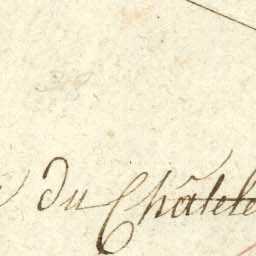 du Châtele